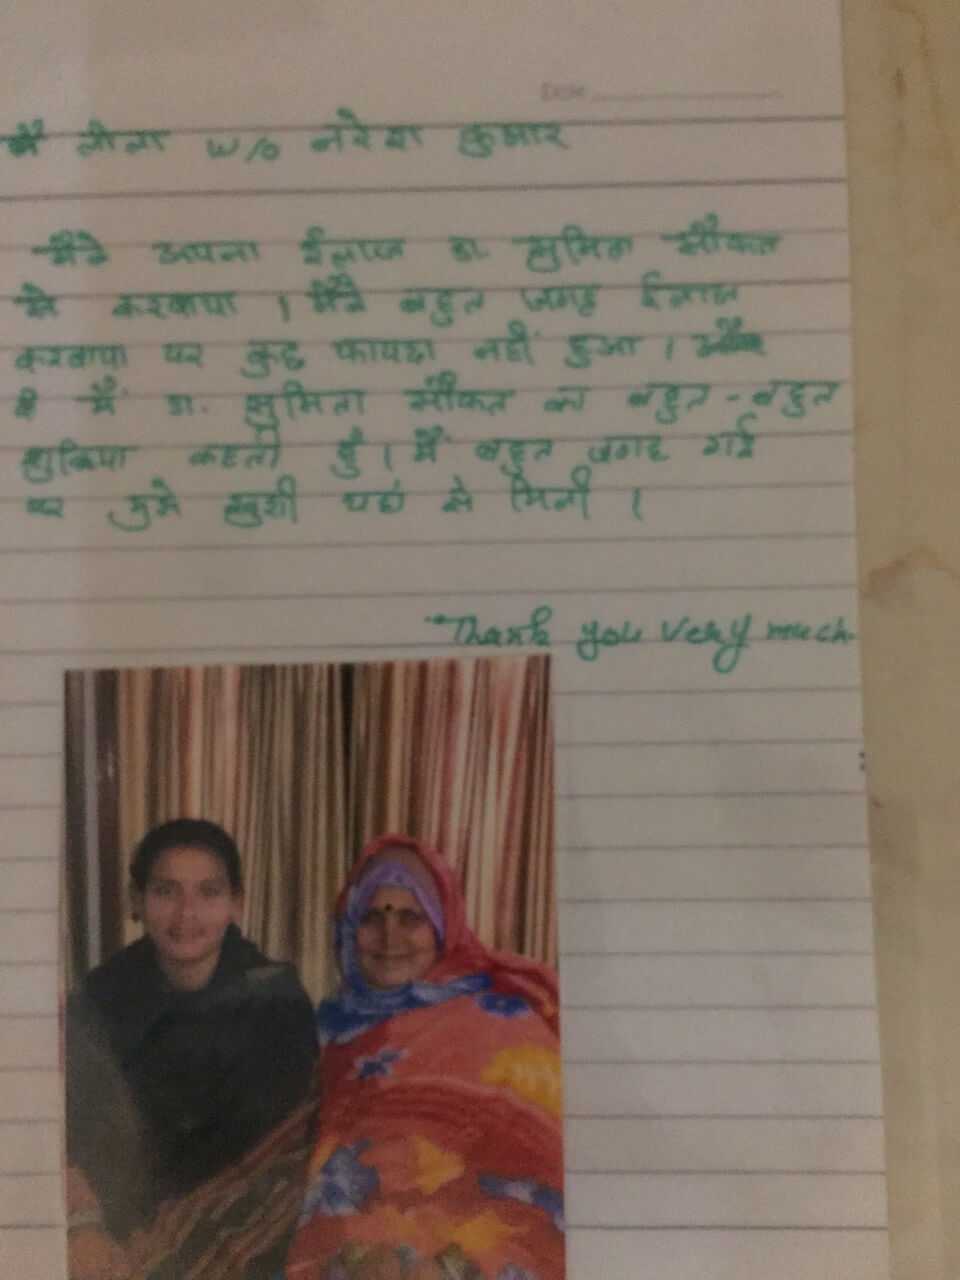 Date
मैं लीला w/o नरेश कुमार
मैने अपना ईलाज डा. सुमिता सौफत
से करवाया । मैने बहुत जगह ईलाज
करवाया पर कुछ फायदा नहीं हुआ ।
मैं डा. सुमिता सौफत का बहुत - बहुत
शुक्रिया करती हुँ । मैं बहुत जगह गई
पर मुझे खुशी यहां से मिली ।
"Thank you very much.